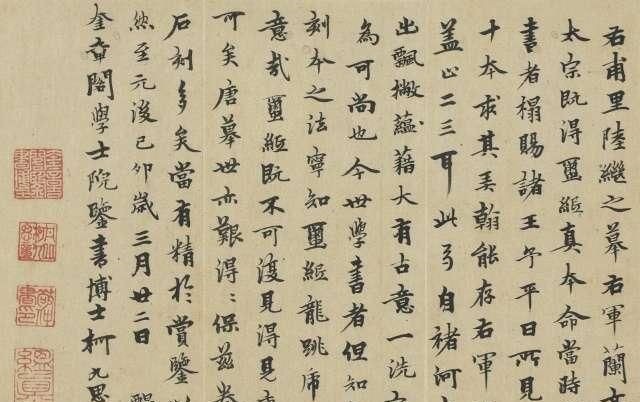 右甫里陸繼之摹右軍蘭
太宗既得蠒紙真本命當時
書者搨賜諸王予平日所見
十本求其弄翰能存右軍
蓋止二三耳此弓自褚河
出飄撇蘊藉大有古意一洗
為可尚也今世學書者但知
刻本之法寧知蠒紙龍跳虎
意哉蠒紙既不可復見得見
可矣唐摹世亦艱得〻保茲
石刻多矣當有精於賞鑒
然至元後己卯歲三月廿二日
奎章閣學士院鑒書博士柯九思